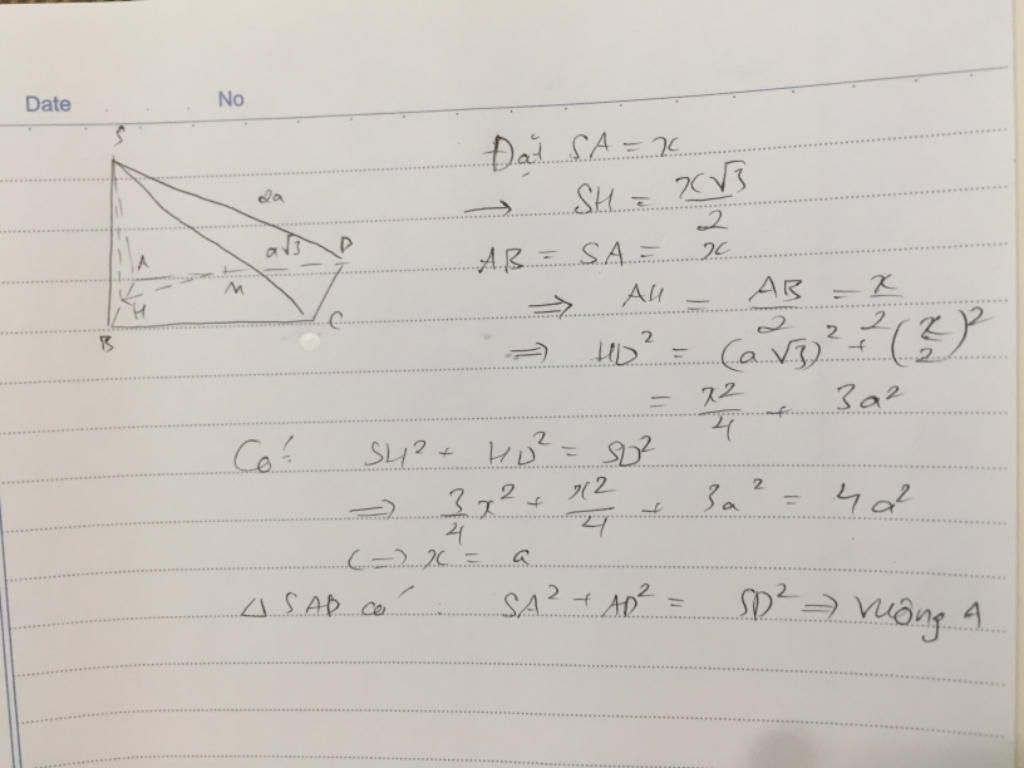 Date No
S
2a
a√3 D
A
M
H
B C
Đặt SA = x
→ SH = x√3/2
AB = SA = x
⇒ AH = AB/2 = x/2
⇒ HD² = (a√3)² + (x/2)²
= x²/4 + 3a²
Có: SH² + HD² = SD²
⇒ 3/4 x² + x²/4 + 3a² = 4a²
(=> x = a
△ SAD có: SA² + AD² = SD² ⇒ vuông A